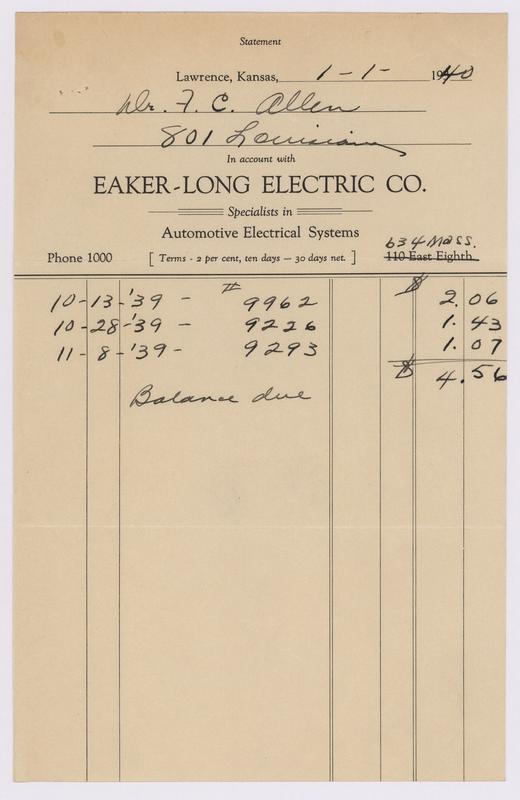 Statement
Lawrence, Kansas, 1-1- 1940
Dr. F. C. Allen
801 Louisiana
In account with
EAKER-LONG ELECTRIC CO.
Specialists in
Automotive Electrical Systems
634 Mass.
Phone 1000 [ Terms - 2 per cent, ten days — 30 days net. ] 110 East Eighth
10-13-'39 - # 9962 $ 2.06
10-28-'39 - 9226 1.43
11-8-'39- 9293 1.07
$ 4.56
Balance due